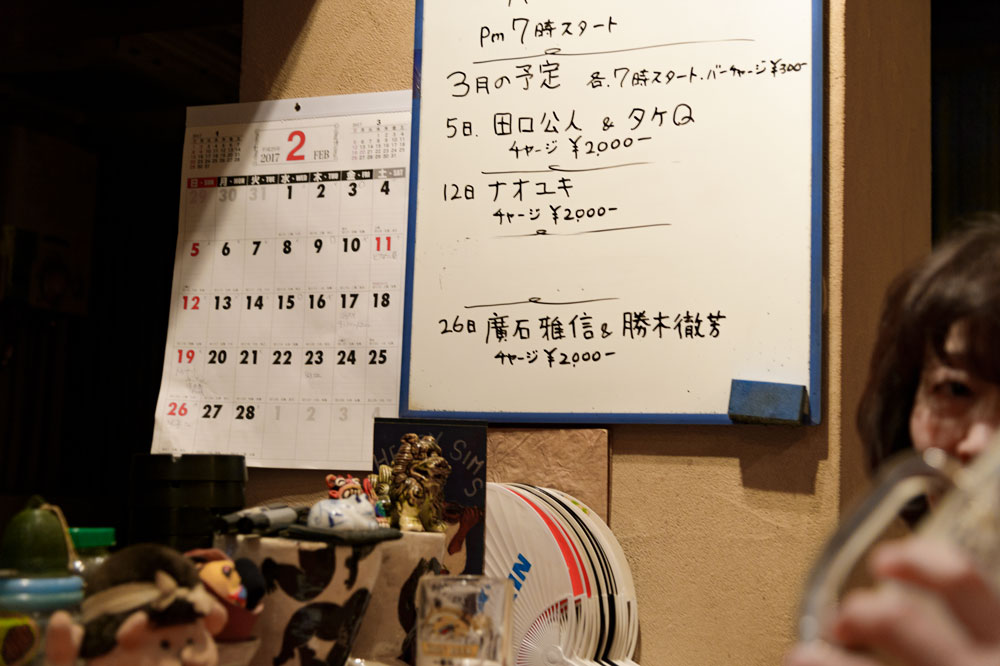 Pm 7時スタート
3月の予定 各.7時スタート.バーチャージ¥300-
5日. 田口公人 & タケQ
チャージ ¥2,000-
12日 ナオユキ
チャージ ¥2,000-
26日 廣石雅信 & 勝木徹芳
チャージ ¥2,000-
1
2017 2 FEB
3
日・SUN 月・MON 火・TUE 水・WED 木・THU 金・FRI 土・SAT
29 30 31 1 2 3 4
5 6 7 8 9 10 11
12 13 14 15 16 17 18
19 20 21 22 23 24 25
26 27 28 1 2 3 4
SIMS